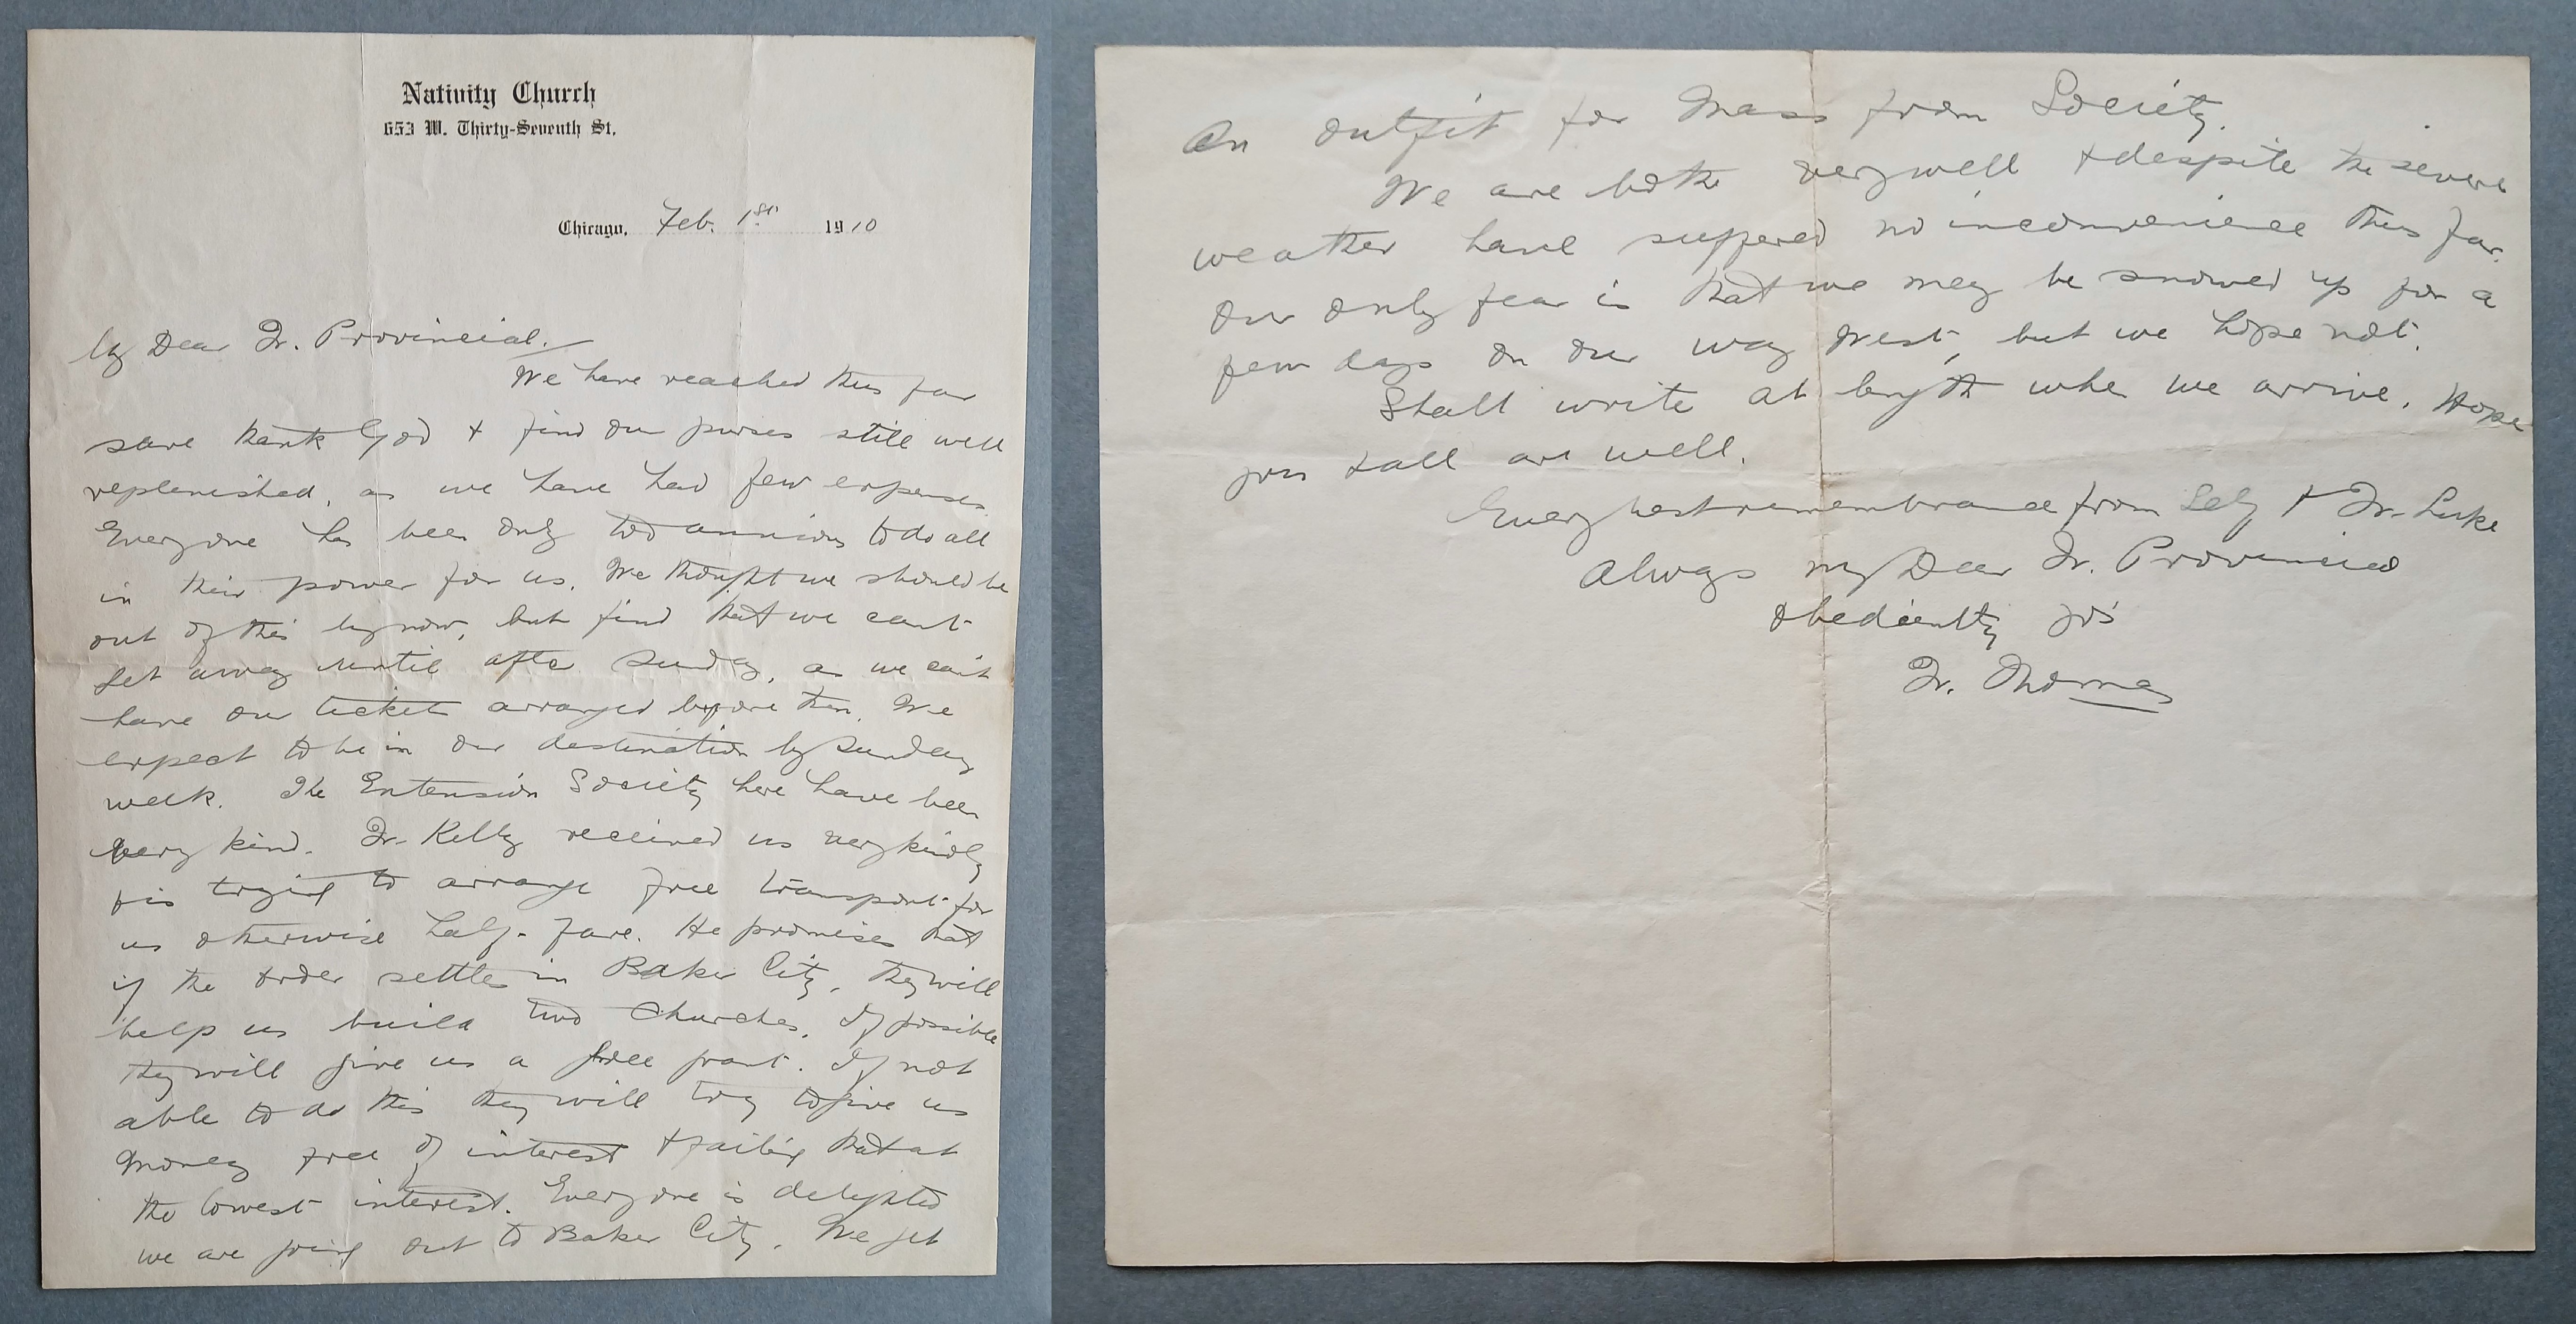 Nativity Church
653 W. Thirty-Seventh St.
Chicago, Feb. 1st 1910
My Dear Fr. Provincial.
We have reached thus far
save thank God & find our purses still well
replenished, as we have had few expenses
Everyone has been only too anxious to do all
in their power for us. We thought we should be
out of this by now, but find that we cant
get away until after Sunday, as we can't
have our tickets arranged before then. We
expect to be in our destination by Sunday
week. The Extension Society here have been
very kind. Fr. Kelly received us very kindly
& is trying to arrange free transport for
us otherwise half-fare. He promises that
if the order settles in Baker City, they will
help us build two Churches. If possible
they will give us a free grant. If not
able to do this they will try to give us
money free of interest & failing that at
the lowest interest. Everyone is delighted
we are going out to Baker City. We get
an outfit for Mass from Society.
We are both very well & despite the severe
weather have suffered no inconvenience thus far.
Our only fear is that we may be snowed up for a
few days on our way West, but we hope not.
Shall write at length when we arrive. Hope
you & all are well.
Every best remembrance from Self & Fr. Luke
Always my Dear Fr. Provincial
obediently yrs
Fr. Thomas